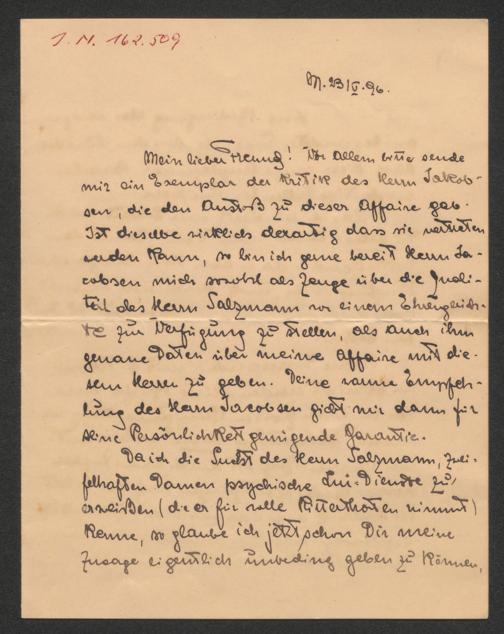 I. N. 162.509
M. 23/V. 96.
Mein lieber Freund! Vor allem bitte sende
mir ein Exemplar der Kritik des Herrn Jakob-
sen, die den Anstoß zu dieser Affaire gab.
Ist dieselbe wirklich derartig dass sie vertreten
werden kann, so bin ich gerne bereit Herrn Ja-
cobsen mich sowohl als Zeuge über die Quali-
tät des Herrn Salzmann vor einem Ehrengerich-
te zur Verfügung zu stellen, als auch ihm
genaue Daten über meine Affaire mit die-
sem Herren zu geben. Deine warme Empfeh-
lung des Herrn Jacobsen giebt mir dann für
seine Persönlichkeit genügende Garantie.
Da ich die Sucht des Herrn Salzmann, zwei-
felhaften Damen psychische Dienste zu
erweißen (die er für volle Ritterthaten nimmt)
kenne, so glaube ich jetzt schon Dir meine
Zusage eigentlich unbeding geben zu können,